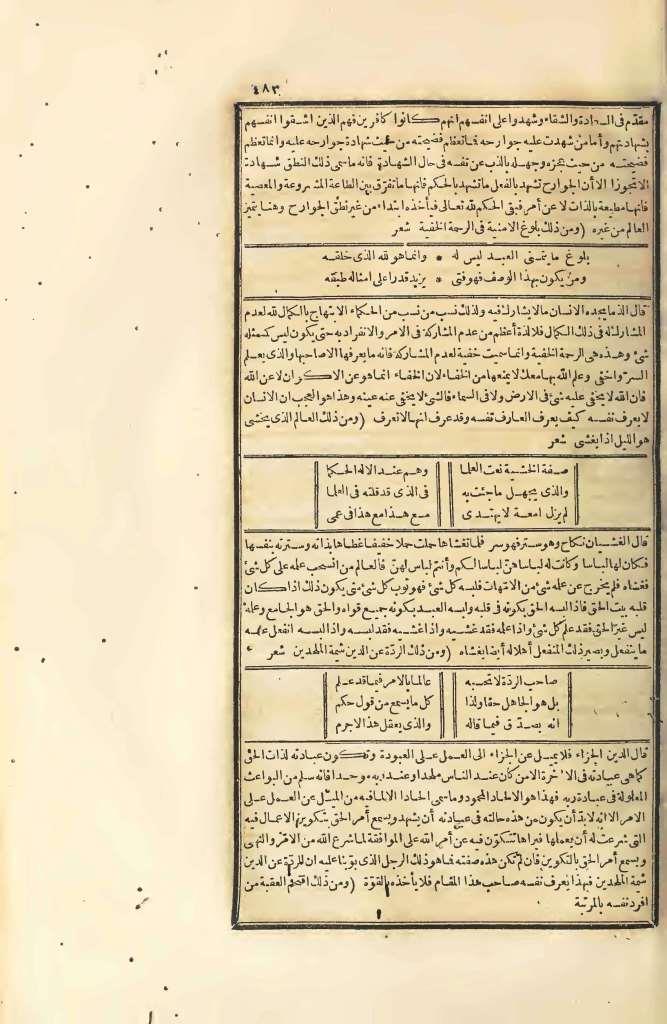 ٤٨٣
مقدم فى السعادة والشقاء وشهدوا على انفسهم انهم كانوا كافرين فهم الذين اشقوا انفسهم
بشهادتهم وأما من شهدت عليه جوارحه فما تعظم فضيحته من حيث شهادة جوارحه عليه وانما تعظم
فضيحته من حيث عجزه وجهله بالذب عن نفسه فى حال الشهادة فانه ما سمى ذلك النطق شهادة
الا تجوزا لان الجوارح تشهد بالفعل ما تشهد بالحكم فانها ما تفرق بين الطاعة المشروعة والمعصية
فانها مطيعة بالذات لا عن أمر فبقى الحكم لله تعالى فيأخذه ابتداء من غير نطق الجوارح وهنا يتميز
العالم من غيره (ومن ذلك بلوغ الامنية فى الرحمة الخفية شعر
بلوغ ما يتمنى العبد ليس له * وانما هو لله الذى خلقه
ومن يكون بهذا الوصف فهو فتى * يزيد قدرا على امثاله طبقه
قال الذ ما يجده الانسان ما لا يشارك فيه ولذلك نسب من نسب من الحكماء الابتهاج بالكمال لله لعدم
المشارك له فى ذلك الكمال فلا لذة أعظم من عدم المشاركة فى الامر والانفراد به حتى يكون ليس كمثله
شئ وهذه هى الرحمة الخفية وانما سميت خفية لعدم المشاركة فانه ما يعرفها الا صاحبها والذى يعلم
السر واخفى وعلم الله بها معك لا يمنعها من الخفاء لان الخفاء انما هو عن الاكوان لا عن الله
فان الله لا يخفى عليه شئ فى الارض ولا فى السماء فالشئ لا يخفى عنه عينه وهذا هو العجب ان الانسان
لا يعرف نفسه كيف يعرف العارف نفسه وقد عرف انها لا تعرف (ومن ذلك العالم الذى يخشى
هو الليل اذا يغشى شعر
صفة الخشية نعت العلما وهم عند الاله الحكما
والذى يجهل ما جئت به فى الذى قد قلته فى العلما
لم يزل امعة لا يهتدى مع هذا مع هذا فى عمى
قال الغشيان نكاح وهو ستر فهو سر فلما تغشاها حملت حملا خفيفا غطاها بذاته وسترته بنفسها
فكان لها لباسا وكانت له لباسا هن لباس لكم وأنتم لباس لهن فالعالم من انسحب علمه على كل شئ
فغشاه فلم يخرج عن علمه شئ من الامهات قلبه كل شئ فهو ثوب كل شئ متى يكون ذلك اذا كان
قلبه بيت الحق فاذا لبسه الحق بكونه فى قلبه ولبسه العبد بكونه جميع قواه والحق هو الجامع وعلمه
ليس غير الحق فقد علم كل شئ واذا علمه فقد غشيه واذا غشيه فقد لبسه واذا لبسه انفعل عنه
ما ينفعل ويصير ذلك المنفعل أهلا له أيضا يغشاه (ومن ذلك الردة عن الدين شيمة الملحدين شعر
صاحب الردة لا تحسبه عالما بالامر فيما قد علم
بل هو الجاهل حقا ولذا كل ما يسمع من قول حكم
انه بصدق فيما قاله والذى يعقل هذا لا جرم
قال الدين الجزاء فلا يميل عن الجزاء الى العمل على العبودة وتكون عبادته لذات الحق
كما هى عبادته فى الآخرة الا من كان عند الناس ملحدا وعند ربه موحدا فانه سلم من البواعث
المعلولة فى عبادة ربه فهذا هو الالحاد المحمود وما سمى الحادا الا لما فيه من الميل عن العمل على
الامر الا انه لابد أن يكون من هذه حالته فى عبادته أن يشهد ويسمع أمر الحق بتكوين الاعمال فيه
التى شرعت له أن يعملها فيراها تتكون فيه عن أمر الله على الموافقة لما شرع الله من الامر والنهى
ويسمع أمر الحق بالتكوين فان لم تكن هذه صفته فما هو ذلك الرجل الذى بوّبنا عليه ان للردة عن الدين
شيمة الملحدين فبهذا يعرف نفسه صاحب هذا المقام فلا يأخذه بالقوة (ومن ذلك اقتحم العقبة من
افرد نفسه بالمرتبة